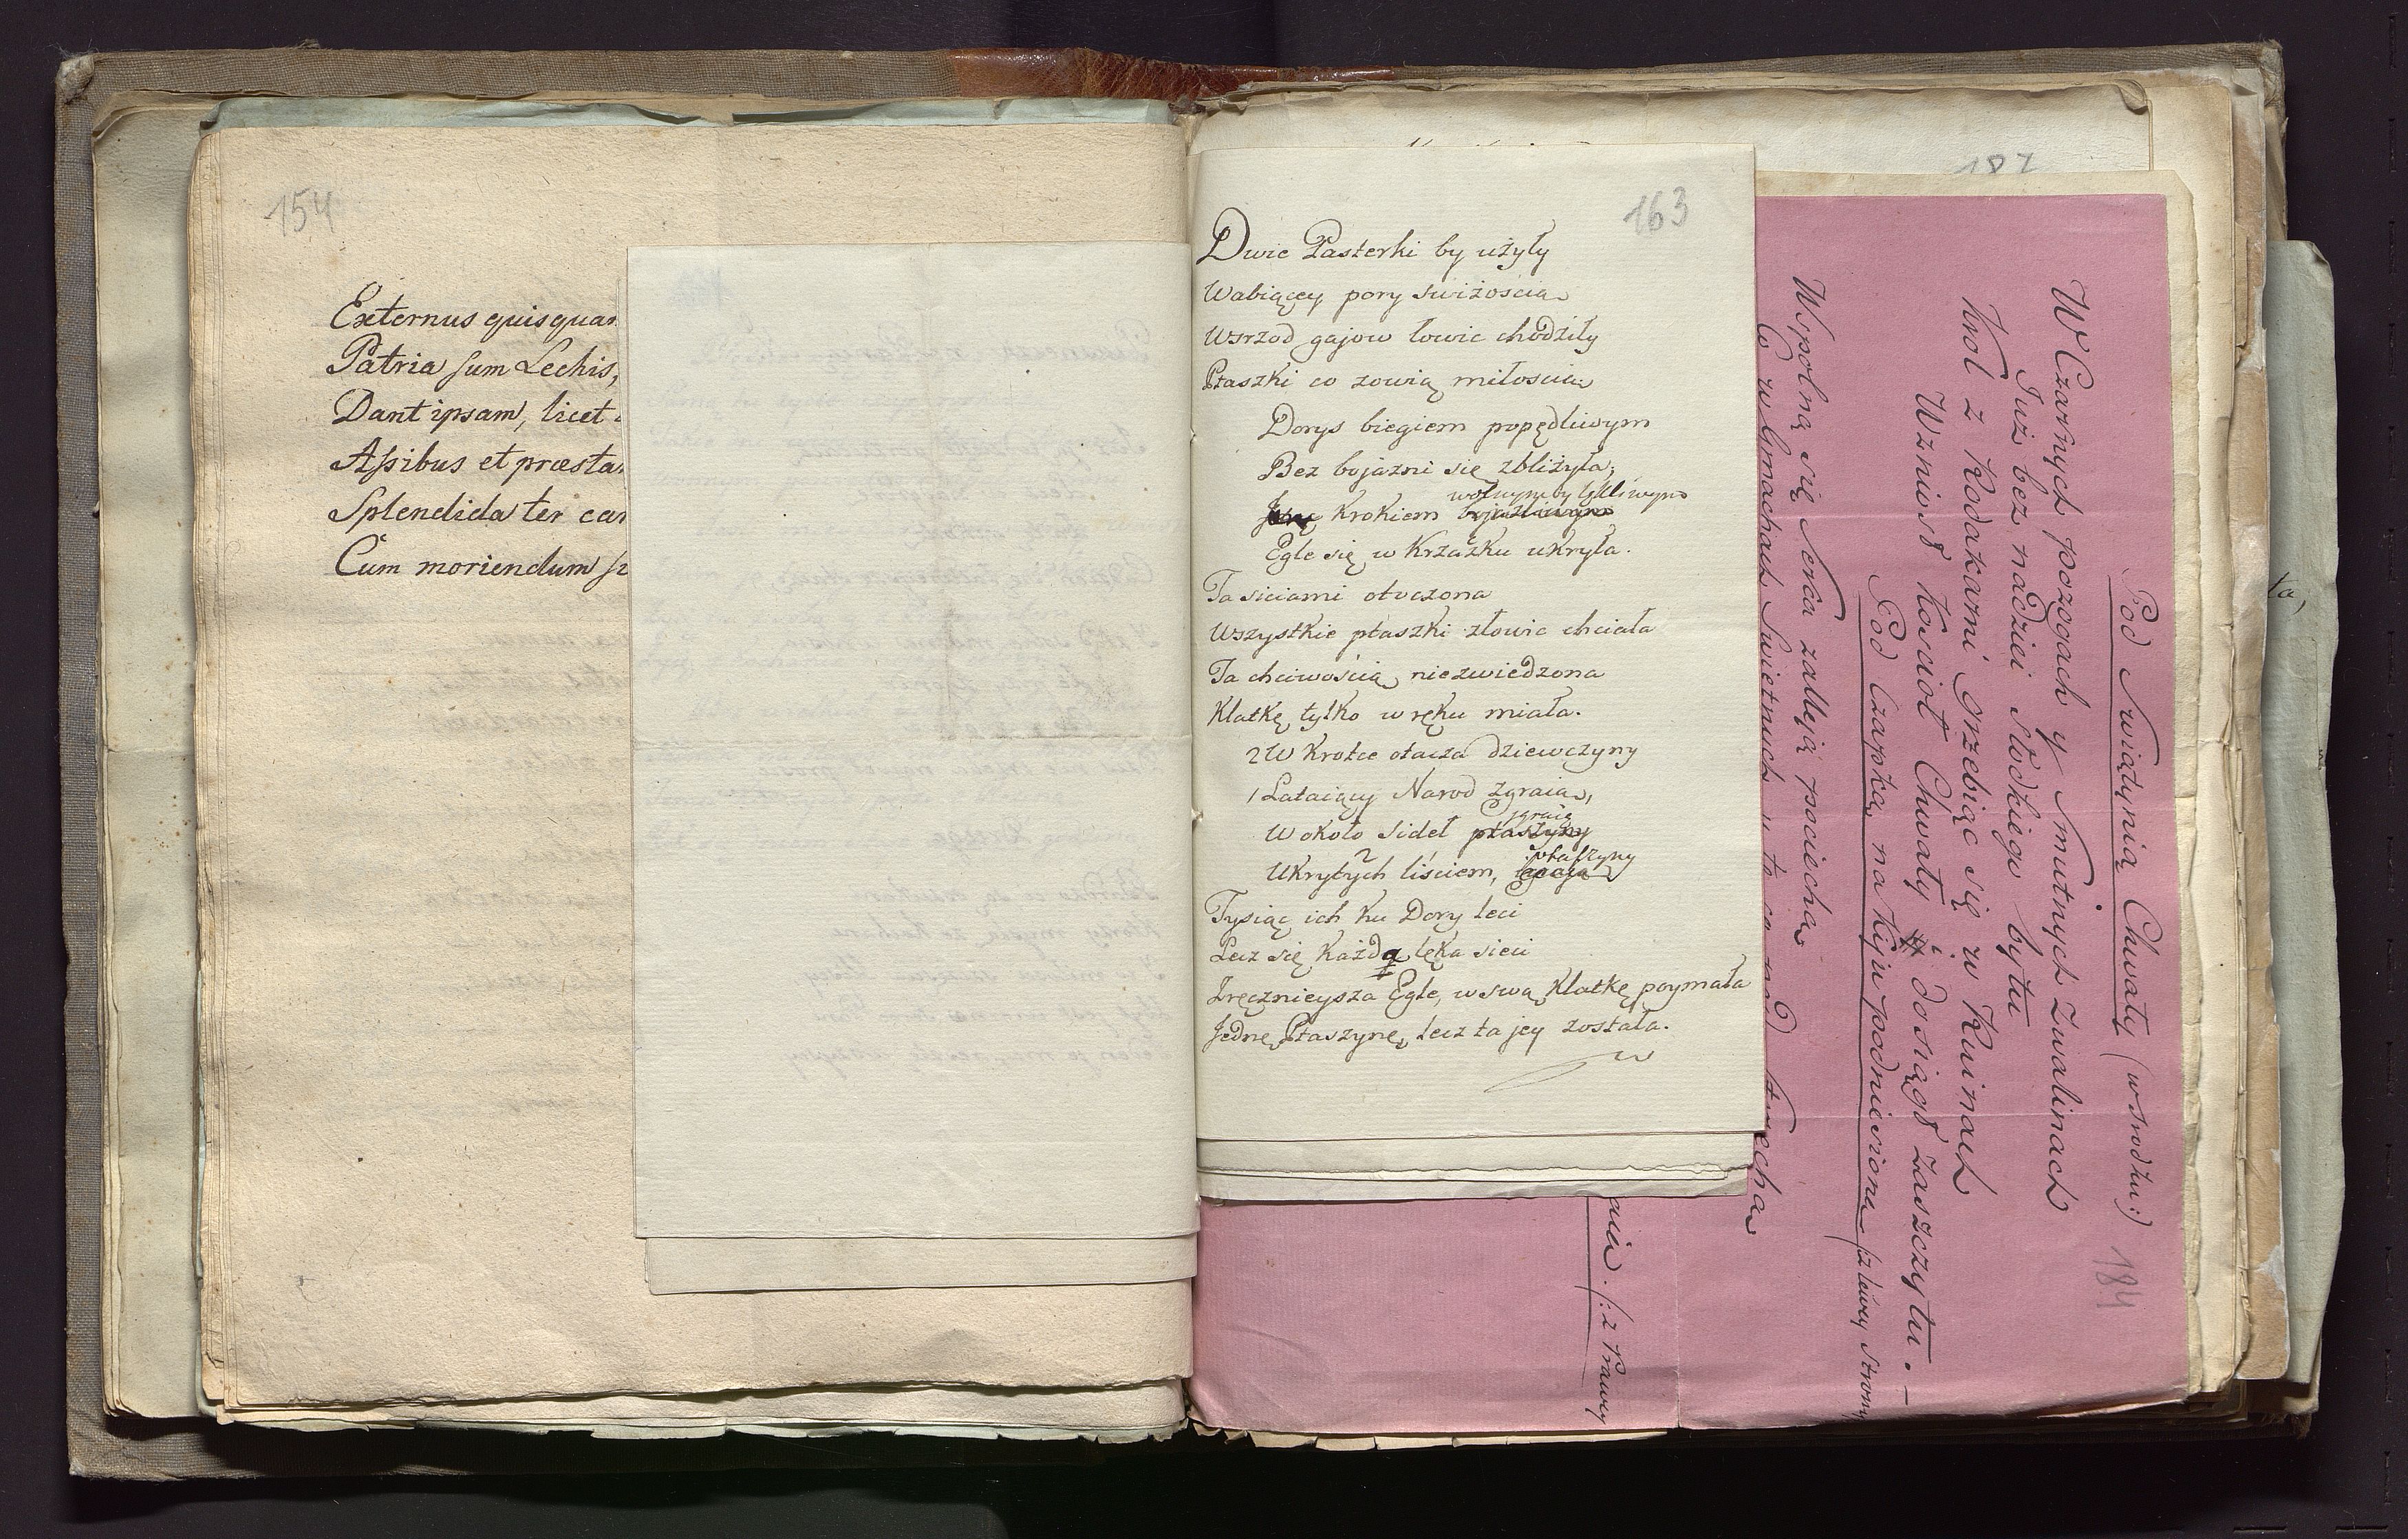 154
Externus quisquam
Patria sum Lechis,
Dant ipsam, licet
Assibus et præsta
Splendida ter car
Cum moriendum
163
Dwie Pasterki by użyły
Wabiącey pory swiżoscia
Wsrzod gajow łowic chodziły
Ptaszki co zowią miłoscią
Dorys biegiem popędliwym
Bez bojazni się zbliżyła;
wolnym by tkliwym
Krokiem bojazliwym
Egle się w Krzaczku ukryła.
Ta sieciami otoczona
Wszystkie ptaszki złowic chciała
Ta chciwością niezwiedzona
Klatkę tylko w ręku miała.
2 W Krotce otacza dziewczyny
1 Lataiący Narod Zgraią,
zgraią
W około sideł ptaszyny
ptaszyny
Ukrytych liściem,
Tysiąc ich ku Dory leci
Lecz się każda lęka sieci
Zręcznieysza Egle, w swą Klatkę poymała
Jednę Ptaszynę, lecz ta jey została.
187
184
Pod Swiątynią Chwały (w srodku:)
W Czarnych pozogach y smutnych zwalinach
Już bez nadziei słodkiego bytu
Krol z Rodakami grzebiąc się w Ruinach
Wzniosł Koscioł Chwały i dosiągł zaszczytu.
Pod Czapką na kiju podniesioną (z lewey Strony
Wspolną się serca zalleją pociechą
Co w Gmachach swietnych
strzecha
(: z Prawey
ta,